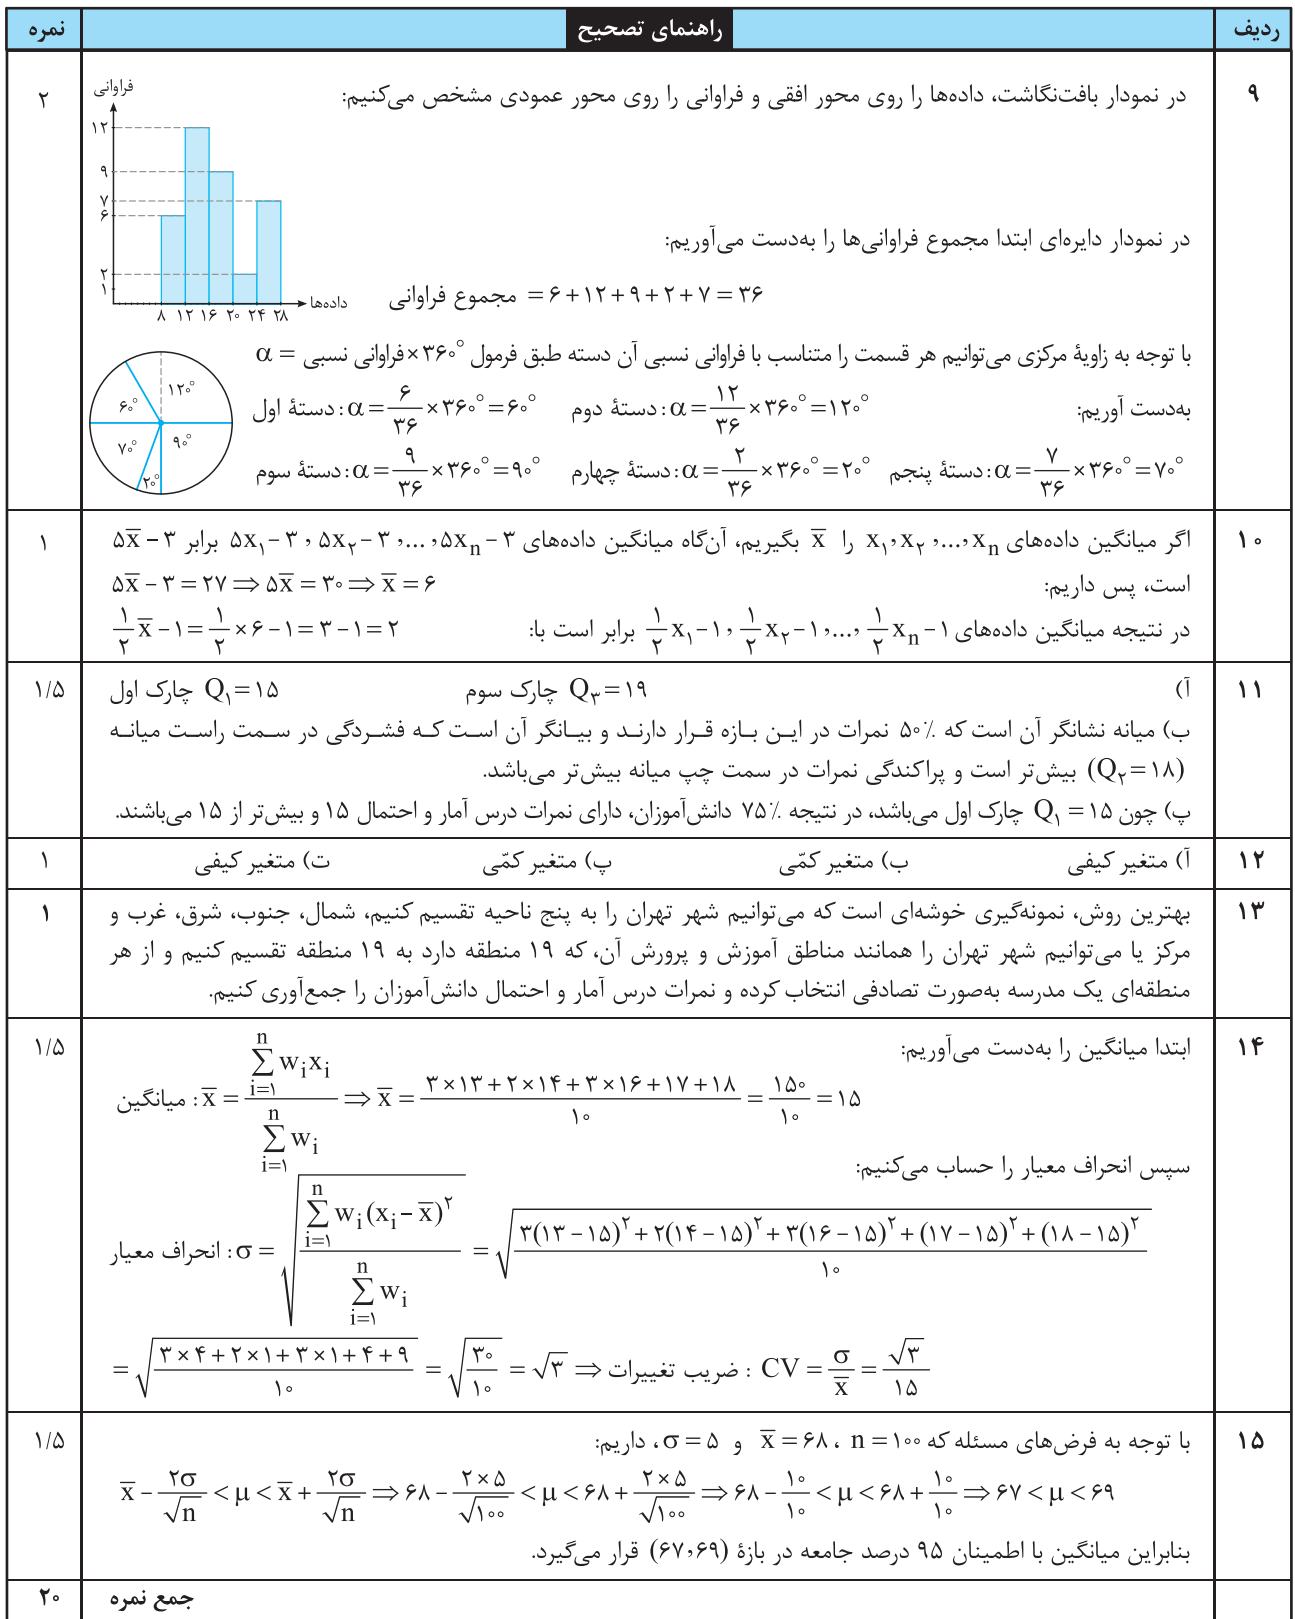 ردیف راهنمای تصحیح نمره
۹ در نمودار بافت‌نگاشت، داده‌ها را روی محور افقی و فراوانی را روی محور عمودی مشخص می‌کنیم: ۲
فراوانی
۱۲
۹
۷
۶
۲
۱
۸ ۱۲ ۱۶ ۲۰ ۲۴ ۲۸ داده‌ها
در نمودار دایره‌ای ابتدا مجموع فراوانی‌ها را به‌دست می‌آوریم:
مجموع فراوانی = ۶+۱۲+۹+۲+۷ = ۳۶
با توجه به زاویهٔ مرکزی می‌توانیم هر قسمت را متناسب با فراوانی نسبی آن دسته طبق فرمول α = فراوانی نسبی × ۳۶۰°
به‌دست آوریم:
دستهٔ اول: α = ۶/۳۶ × ۳۶۰° = ۶۰° دستهٔ دوم: α = ۱۲/۳۶ × ۳۶۰° = ۱۲۰°
دستهٔ سوم: α = ۹/۳۶ × ۳۶۰° = ۹۰° دستهٔ چهارم: α = ۲/۳۶ × ۳۶۰° = ۲۰° دستهٔ پنجم: α = ۷/۳۶ × ۳۶۰° = ۷۰°
۱۲۰°
۶۰°
۹۰°
۷۰°
۲۰°
۱۰ اگر میانگین داده‌های x₁, x₂, ..., xₙ را x̄ بگیریم، آن‌گاه میانگین داده‌های ۵x₁-۳, ۵x₂-۳, ..., ۵xₙ-۳ برابر ۵x̄-۳ ۱
است، پس داریم: ۵x̄-۳ = ۲۷ ⇒ ۵x̄ = ۳۰ ⇒ x̄ = ۶
در نتیجه میانگین داده‌های ۱/۲ x₁-۱, ۱/۲ x₂-۱, ..., ۱/۲ xₙ-۱ برابر است با: ۱/۲ x̄-۱ = ۱/۲ × ۶-۱ = ۳-۱ = ۲
۱۱ آ) Q₃ = ۱۹ چارک سوم Q₁ = ۱۵ چارک اول ۱/۵
ب) میانه نشانگر آن است که ۵۰٪ نمرات در این بازه قرار دارند و بیانگر آن است که فشردگی در سمت راست میانه
(Q₂ = ۱۸) بیش‌تر است و پراکندگی نمرات در سمت چپ میانه بیش‌تر می‌باشد.
پ) چون Q₁ = ۱۵ چارک اول می‌باشد، در نتیجه ۷۵٪ دانش‌آموزان، دارای نمرات درس آمار و احتمال ۱۵ و بیش‌تر از ۱۵ می‌باشند.
۱۲ آ) متغیر کیفی ب) متغیر کمّی پ) متغیر کمّی ت) متغیر کیفی ۱
۱۳ بهترین روش، نمونه‌گیری خوشه‌ای است که می‌توانیم شهر تهران را به پنج ناحیه تقسیم کنیم، شمال، جنوب، شرق، غرب و ۱
مرکز یا می‌توانیم شهر تهران را همانند مناطق آموزش و پرورش آن، که ۱۹ منطقه دارد به ۱۹ منطقه تقسیم کنیم و از هر
منطقه‌ای یک مدرسه به‌صورت تصادفی انتخاب کرده و نمرات درس آمار و احتمال دانش‌آموزان را جمع‌آوری کنیم.
۱۴ ابتدا میانگین را به‌دست می‌آوریم: ۱/۵
میانگین: x̄ = (∑ⁿᵢ₌₁ wᵢxᵢ)/(∑ⁿᵢ₌₁ wᵢ) ⇒ x̄ = (۳×۱۳+۲×۱۴+۳×۱۶+۱۷+۱۸)/۱۰ = ۱۵۰/۱۰ = ۱۵
سپس انحراف معیار را حساب می‌کنیم:
انحراف معیار: σ = √((∑ⁿᵢ₌₁ wᵢ(xᵢ-x̄)²)/(∑ⁿᵢ₌₁ wᵢ)) = √((۳(۱۳-۱۵)²+۲(۱۴-۱۵)²+۳(۱۶-۱۵)²+(۱۷-۱۵)²+(۱۸-۱۵)²)/۱۰)
= √((۳×۴+۲×۱+۳×۱+۴+۹)/۱۰) = √(۳۰/۱۰) = √۳ ⇒ ضریب تغییرات: CV = σ/x̄ = √۳/۱۵
۱۵ با توجه به فرض‌های مسئله که n = ۱۰۰، x̄ = ۶۸ و σ = ۵، داریم: ۱/۵
x̄ - ۲σ/√n < μ < x̄ + ۲σ/√n ⇒ ۶۸ - (۲×۵)/√۱۰۰ < μ < ۶۸ + (۲×۵)/√۱۰۰ ⇒ ۶۸ - ۱۰/۱۰ < μ < ۶۸ + ۱۰/۱۰ ⇒ ۶۷ < μ < ۶۹
بنابراین میانگین با اطمینان ۹۵ درصد جامعه در بازهٔ (۶۷,۶۹) قرار می‌گیرد.
جمع نمره ۲۰